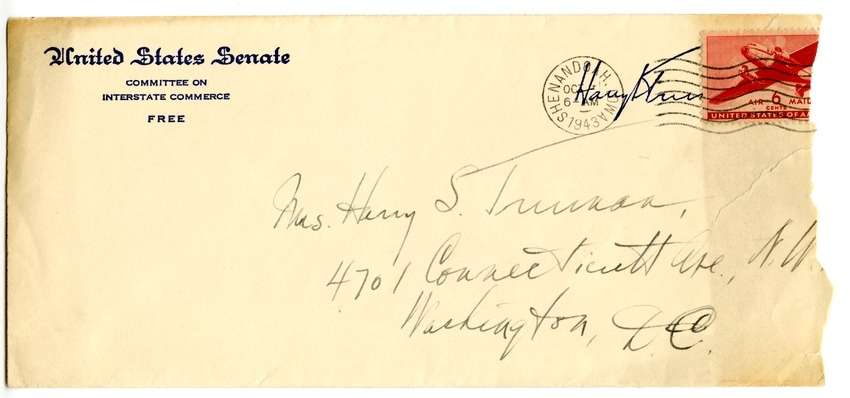 United States Senate
COMMITTEE ON
INTERSTATE COMMERCE
FREE
SHENANDOAH, IOWA
OC
6 AM
1943
Harry S Trum
AIR 6 MAIL
CENTS
UNITED STATES OF AM
Mrs. Harry S. Truman,
4701 Connecticutt Ave., N.W.
Washington, D.C.